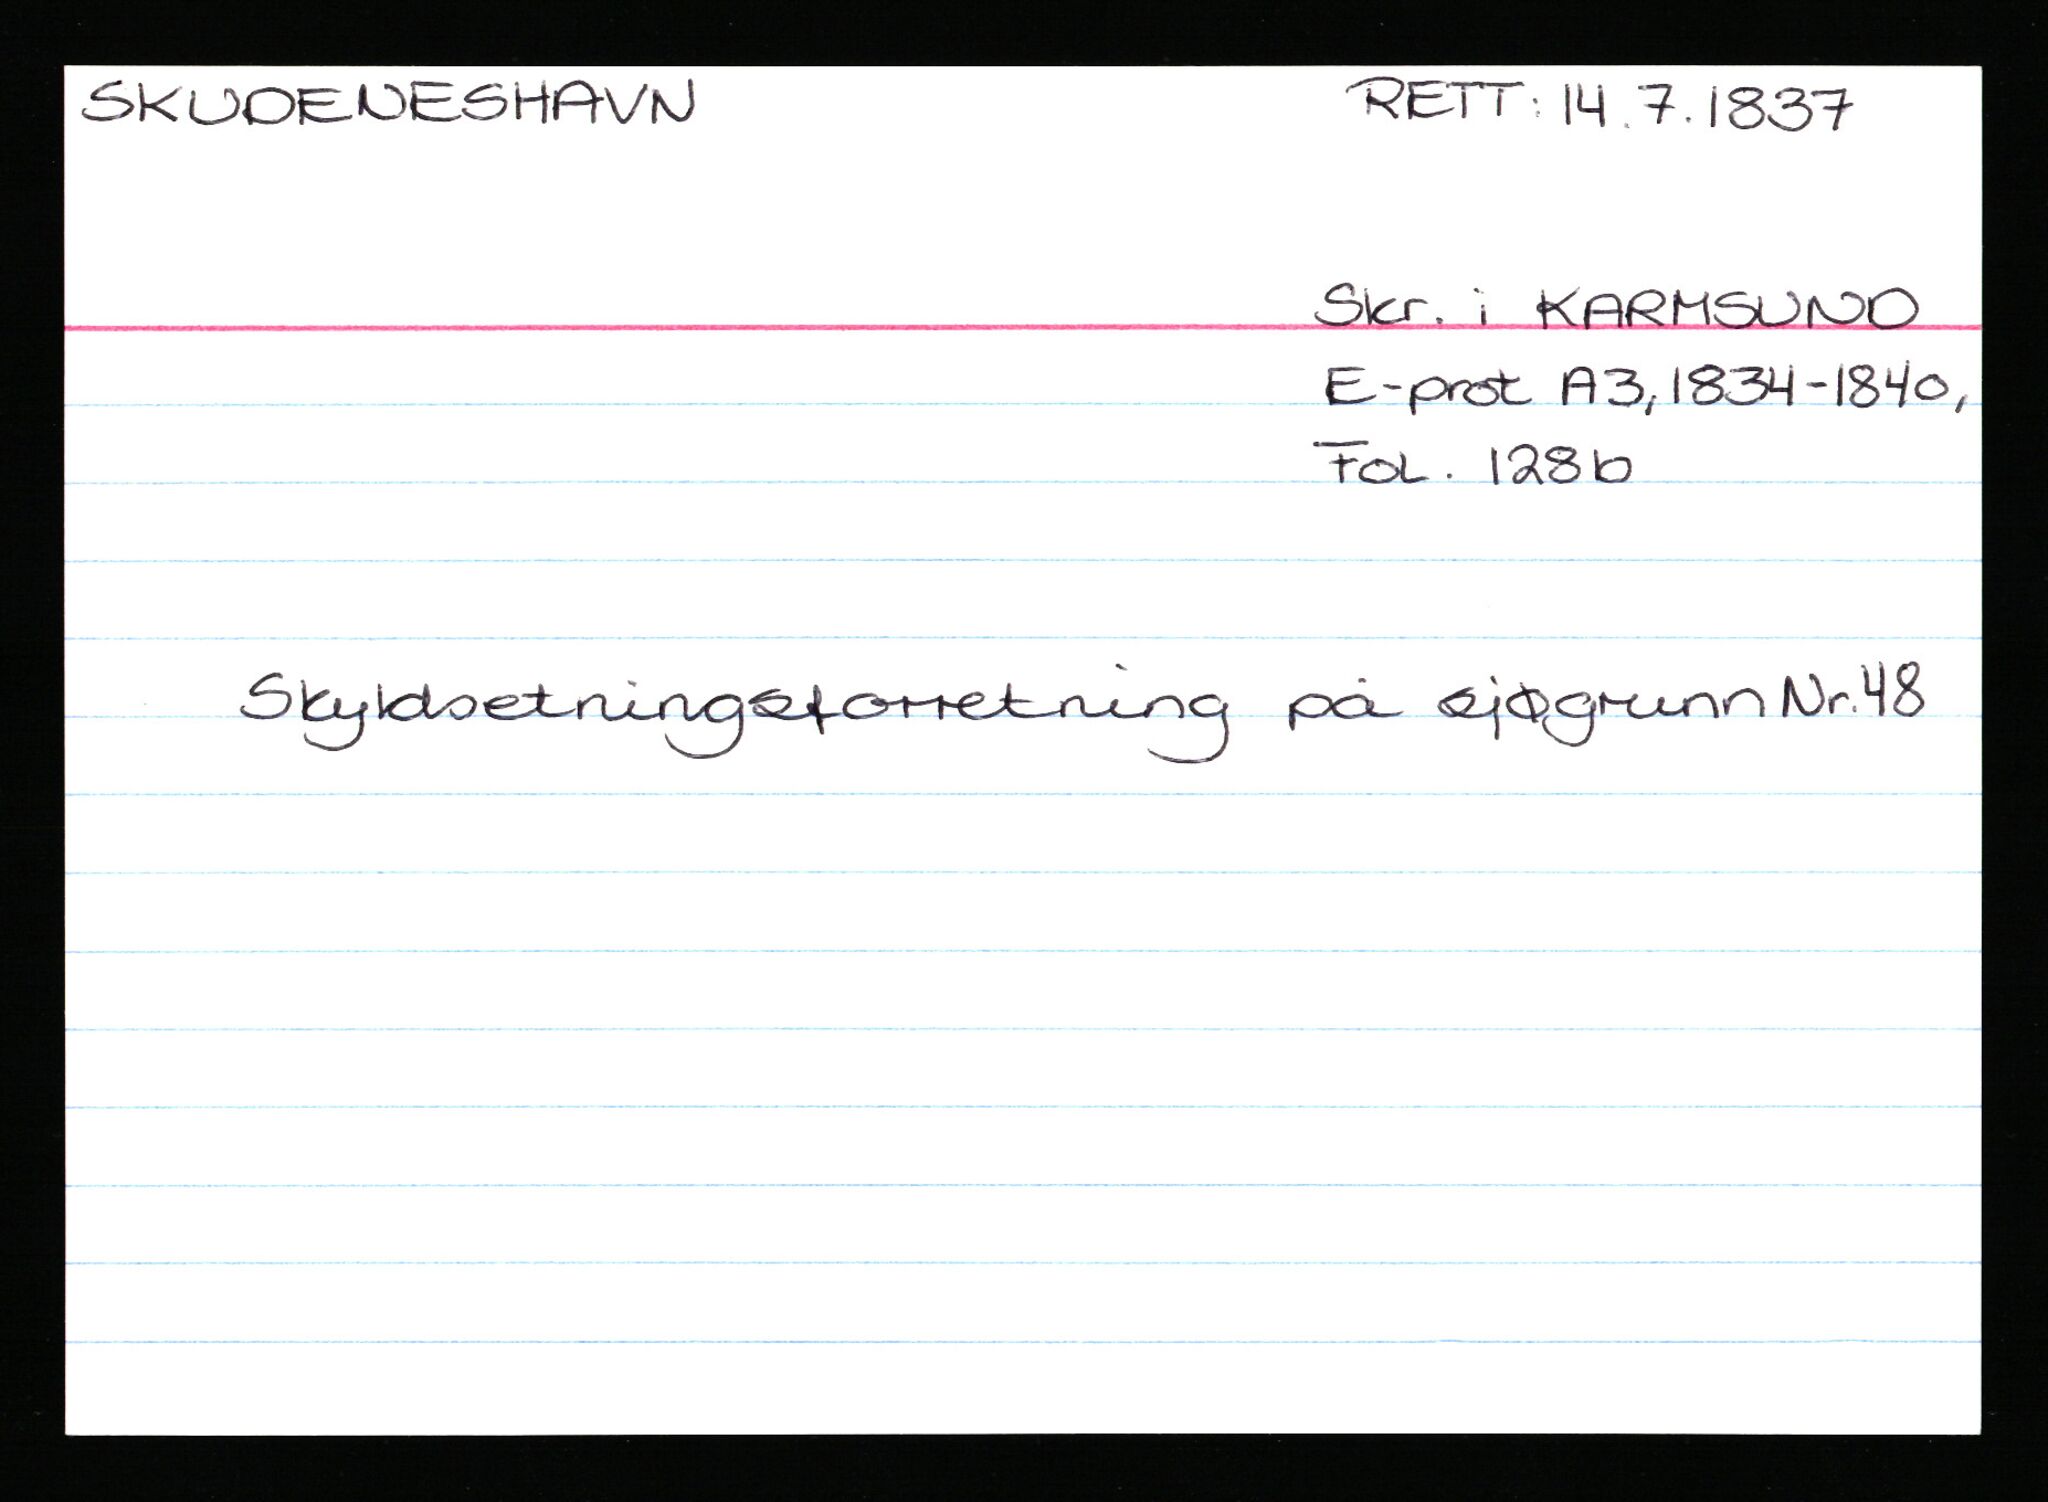 SKUDENESHAVN RETT: 14.7.1837
Skr. i KARMSUND
E-prot A3, 1834-1840,
Fol. 128b
Skyldsetningsforretning på sjøgrunn Nr. 48